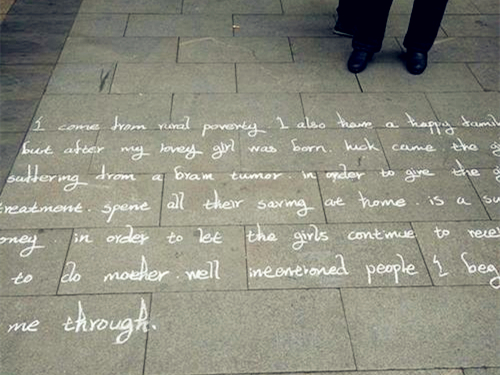 I come from rural poverty I also have a happy famil
but after my lovey girl was born. luck came the gi
suffering from a brain tumor. in order to give the gi
treatment. spent all their saving at home. is a su
oney. in order to let the girls continue to recei
to do mother. well intentioned people I beg
me through.